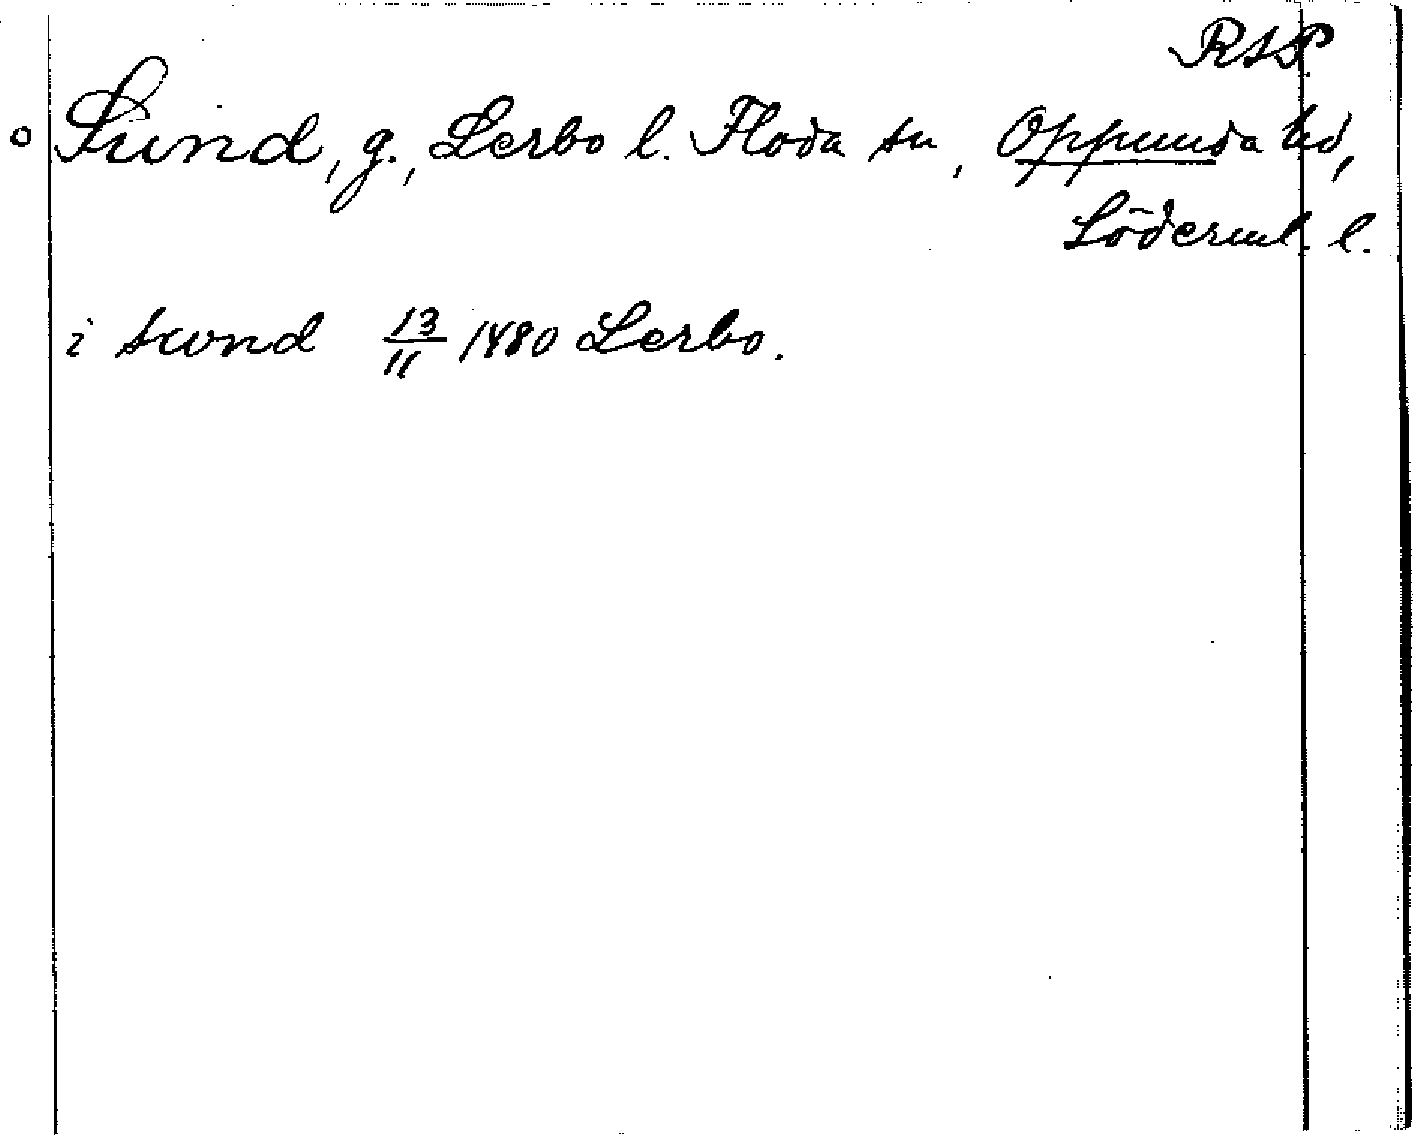 RAP.
Sund, g., Lerbo l. Floda sn, Oppunda hd,
Söderml. l.
i swnd 13/11 1480 Lerbo.